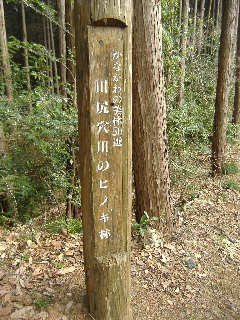 かながわの美林50選
川尻穴川のヒノキ林